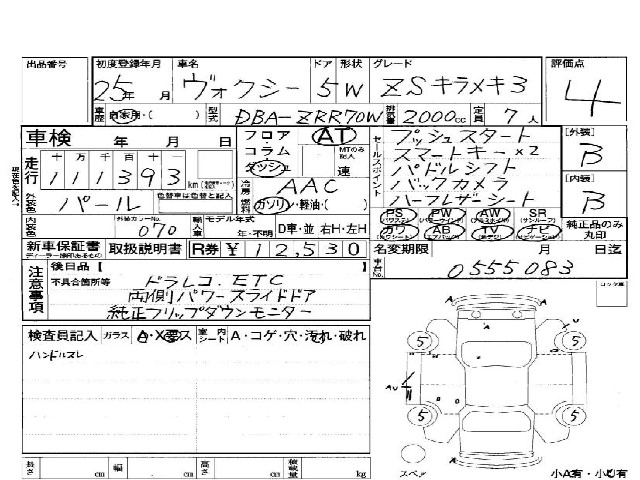 出品番号 初度登録年月 車名 ドア 形状 グレード 評価点
25年 月 ヴォクシー 5 W ZSキラメキ3 4
車歴 自家用・( ) 型式 DBA-ZRR70W 排気量 2000cc 定員 7人
車検 年 月 日 フロア・コラム ダッシュ AT MTのみ記入 速
セールスポイント プッシュスタート
スマートキー×2
パドルシフト
バックカメラ
ハーフレザーシート
[外装] B
[内装] B
走行 十 万 千 百 十 一
111393 km
外装色 パール 色替車は色替と記入 冷房 AAC
燃料 ガソリン・軽油・( )
内装色 外装カラーNo. 070 輸入車 モデル年式 年・不明 D車・並 右H・左H
PS PW AW SR(サンルーフ)
カワ AB TV ナビ 純正品のみ丸印
新車保証書 取扱説明書 R券 ¥12,530 名変期限 月 日迄
車台No. 0555083
注意事項 後日品【 】
不具合箇所等 ドラレコ.ETC
両側パワースライドドア
純正フリップダウンモニター
検査員記入 ガラス A・X・要・ス 室内シート A・コゲ・穴・汚れ・破れ
ハンドルスレ
A
A
X U
5 5
AU
5 5
A
スペア
長さ cm 幅 cm 高さ cm 積載量 kg
小A有・小U有